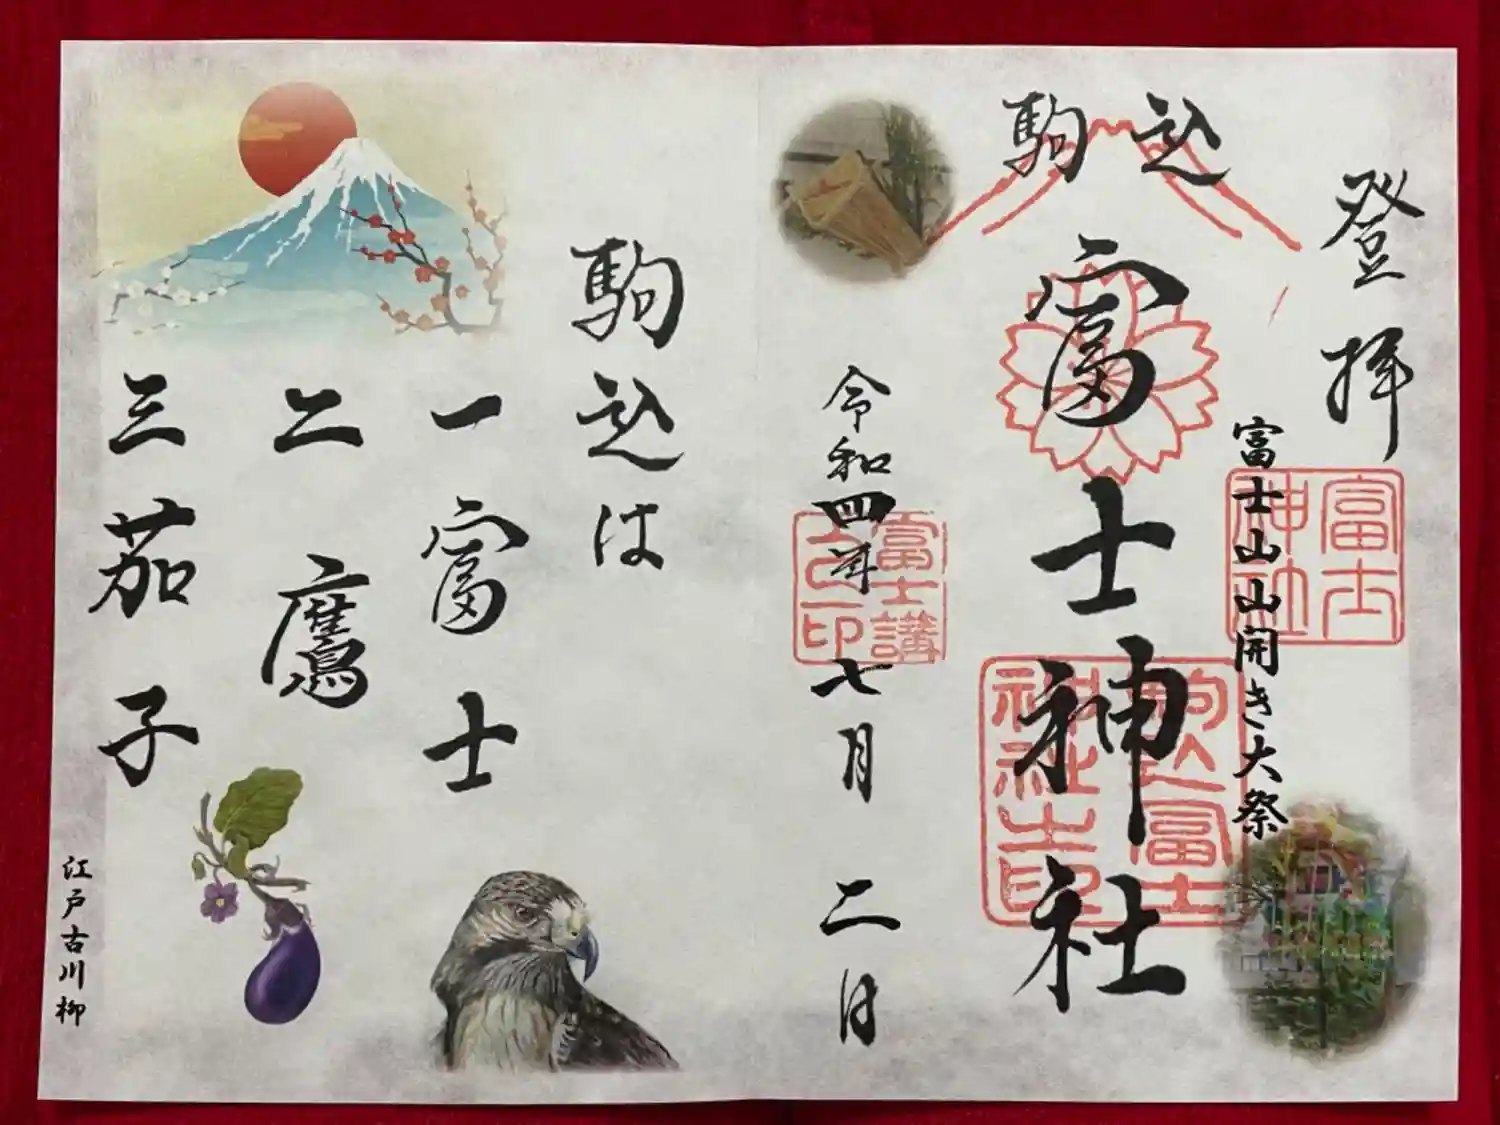 登拝
富士山山開き大祭
富士神社
駒込
富士神社
駒込富士神社之印
令和四年七月二日
富士講之印
駒込は
一富士
二鷹
三茄子
江戸古川柳